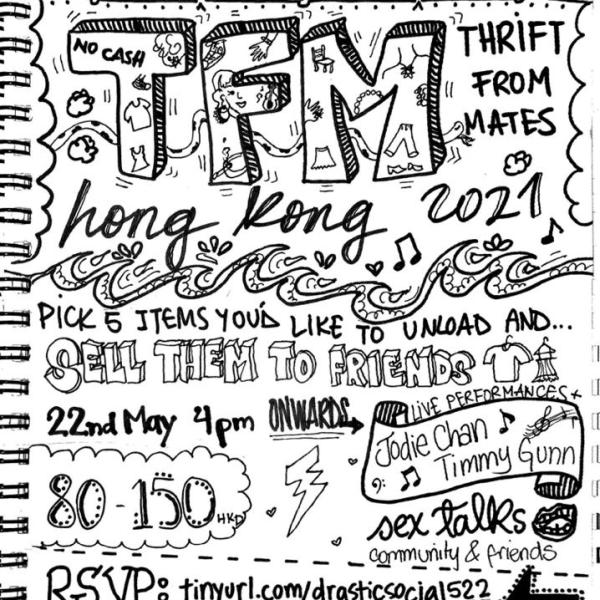 NO CASH
TFM
THRIFT
FROM
MATES
hong kong 2021
PICK 5 ITEMS YOU'D LIKE TO UNLOAD AND...
SELL THEM TO FRIENDS
22nd May 4pm ONWARDS
LIVE PERFORMANCES +
Jodie Chan
Timmy Gunn
80 - 150 HKD
sex talks
community & friends
RSVP: tinyurl.com/drasticsocial522